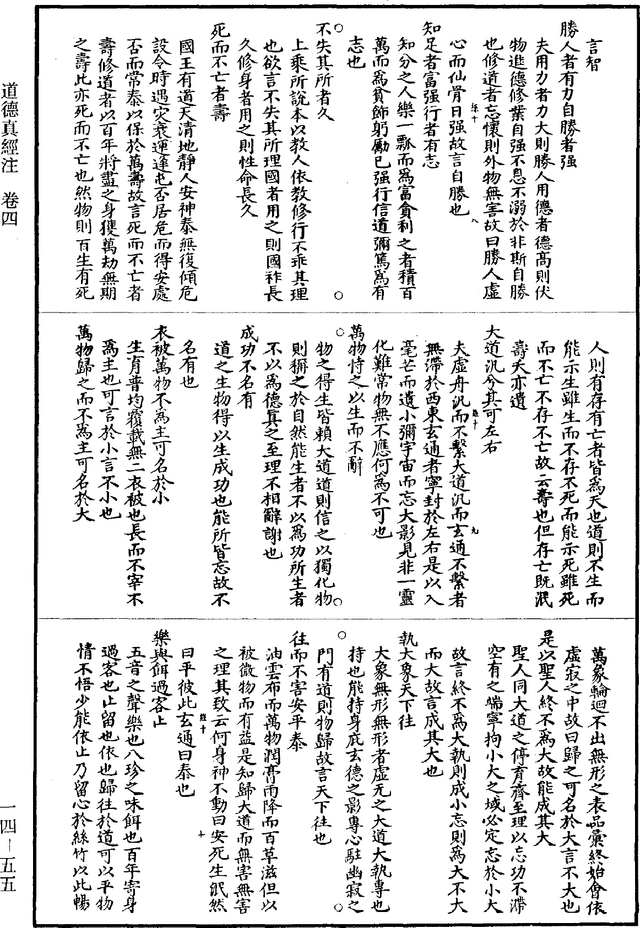 言智
勝人者有力自勝者强
夫用力者力大則勝人用德者德高則伏
物進德修業自强不息不溺於非斯自勝
也修道者忘懷則外物無害故曰勝人虛
心而仙骨日强故言自勝也
知足者富强行者有志
知分之人樂一瓢而爲富貪利之者積百
萬而爲貧飾躬勵己强行信道彌篤爲有
志也
不失其所者久
上乘所說本以教人依教修行不乖其理
也欲言不失其所理國者用之則國祚長
久修身者用之則性命長久
死而不亡者壽
國王有道天清地静人安神泰無復傾危
設令時遇灾衰運逢屯否居危而得安處
否而常泰以保於萬壽故言死而不亡者
壽修道者以百年將盡之身獲萬劫無期
之壽此亦死而不亡也然物則百生有死
人則有存有亡者皆爲夭也道則不生而
能示生雖生而不存不死而能示死雖死
而不亡不存不亡故云壽也但存亡既泯
壽夭亦遺
大道汎兮其可左右
夫虛舟汎而不繫大道汎而玄通不繫者
無滯於西東玄通者寧封於左右是以入
毫芒而遺小彌宇宙而忘大影見非一靈
化難常物無不應何爲不可也
萬物恃之以生而不辭
物之得生皆賴大道道則信之以獨化物
則稱之於自然能生者不以爲功所生者
不以爲德冥之至理不相辭謝也
成功不名有
道之生物得以生成功也能所皆忘故不
名有也
衣被萬物不爲主可名於小
生育普均覆載無二衣被也長而不宰不
爲主也可言於小言不小也
萬物歸之而不爲主可名於大
萬象輪迴不出無形之表品彙終始會依
虛寂之中故曰歸之可名於大言不大也
是以聖人終不爲大故能成其大
聖人同大道之停育齊至理以忘功不滯
空有之端寧拘小大之域必定忘於小大
故言終不爲大執則成小忘則爲大不大
而大故言成其大也
執大象天下往
大象無形無形者虛无之大道大執專也
持也能持身庇玄德之影專心駐幽寂之
門有道則物歸故言天下往也
往而不害安平泰
油雲布而萬物潤膏雨降而百草滋但以
被微物而有益是知歸大道而無害無害
之理其致云何身神不動曰安死生泯然
曰平彼此玄通曰泰也
樂與餌過客止
五音之聲樂也八珍之味餌也百年寄身
過客也止留也依也歸往於道可以平物
情不悟少能依止乃留心於絲竹以此暢
道德真經注　卷四
一四－五五